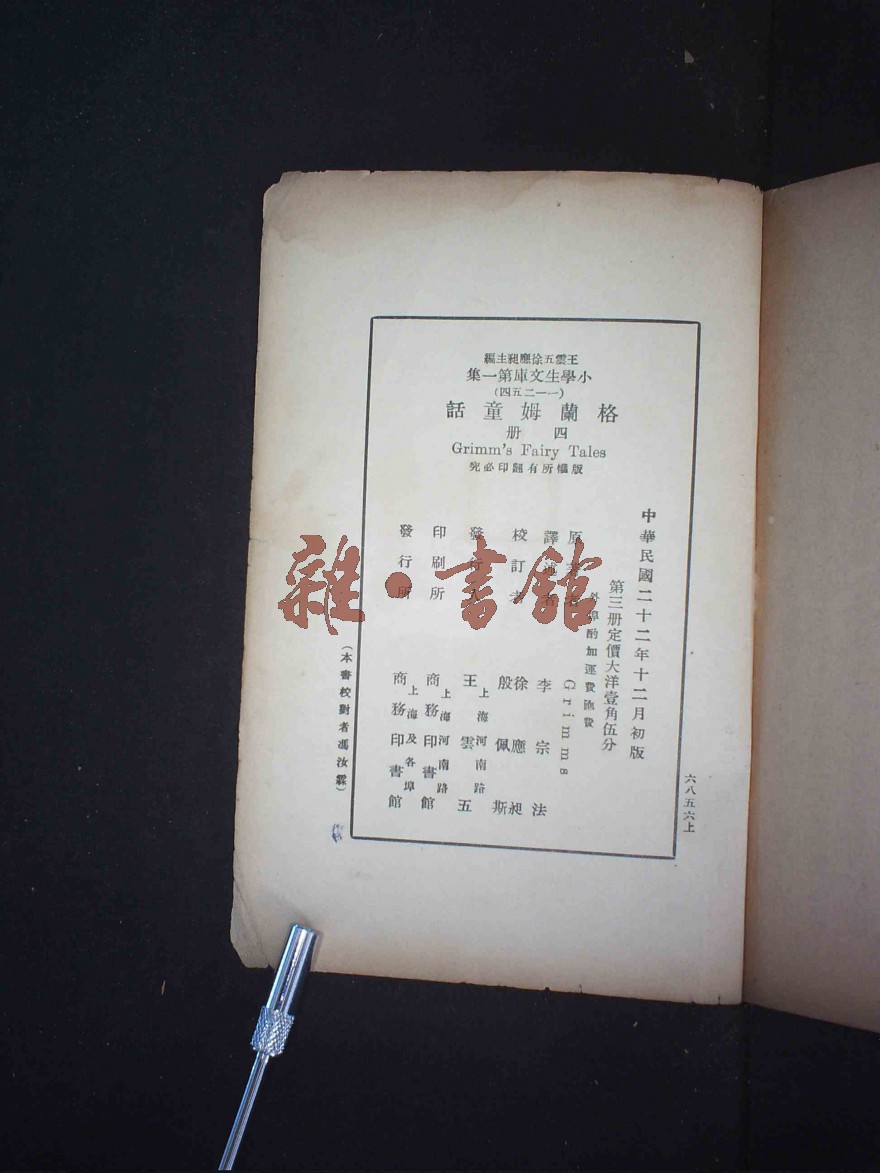 王雲五徐應昶主編
小學生文庫第一集
(一一二五四)
格蘭姆童話
四册
Grimm's Fairy Tales
版權所有翻印必究
中華民國二十二年十二月初版
第三册定價大洋壹角伍分
外埠酌加運費匯費
原著者 Grimms
譯述者 李宗法
校訂者 徐應昶 殷佩斯
發行人 王雲五
上海河南路
印刷所 商務印書館
上海河南路
發行所 商務印書館
上海及各埠
(本書校對者馮汝霖)
六八五六上
雜·書館